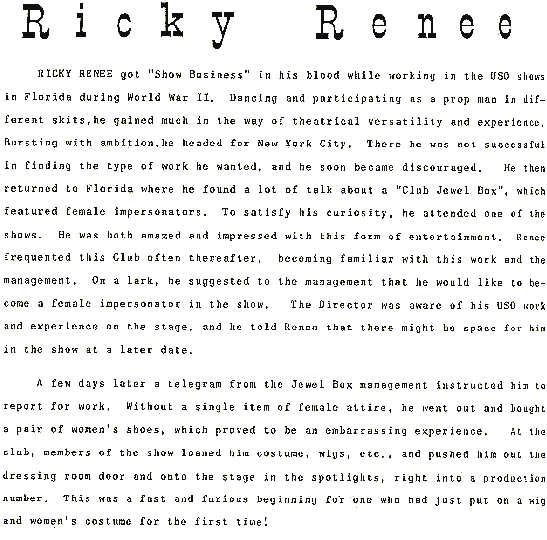 Ricky Renee
RICKY RENEE got "Show Business" in his blood while working in the USO shows
in Florida during World War II. Dancing and participating as a prop man in dif-
ferent skits,he gained much in the way of theatrical versatility and experience.
Bursting with ambition,he headed for New York City. There he was not successful
in finding the type of work he wanted, and he soon became discouraged. He then
returned to Florida where he found a lot of talk about a "Club Jewel Box", which
featured female impersonators. To satisfy his curiosity, he attended one of the
shows. He was both amazed and impressed with this form of entertainment. Renee
frequented this Club often thereafter, becoming familiar with this work and the
management. On a lark, he suggested to the management that he would like to be-
come a female impersonator in the show. The Director was aware of his USO work
and experience on the stage, and he told Renee that there might be space for him
in the show at a later date.
A few days later a telegram from the Jewel Box management instructed him to
report for work. Without a single item of female attire, he went out and bought
a pair of women's shoes, which proved to be an embarrassing experience. At the
club, members of the show loaned him costume, wigs, etc., and pushed him out the
dressing room door and onto the stage in the spotlights, right into a production
number. This was a fast and furious beginning for one who had just put on a wig
and women's costume for the first time!